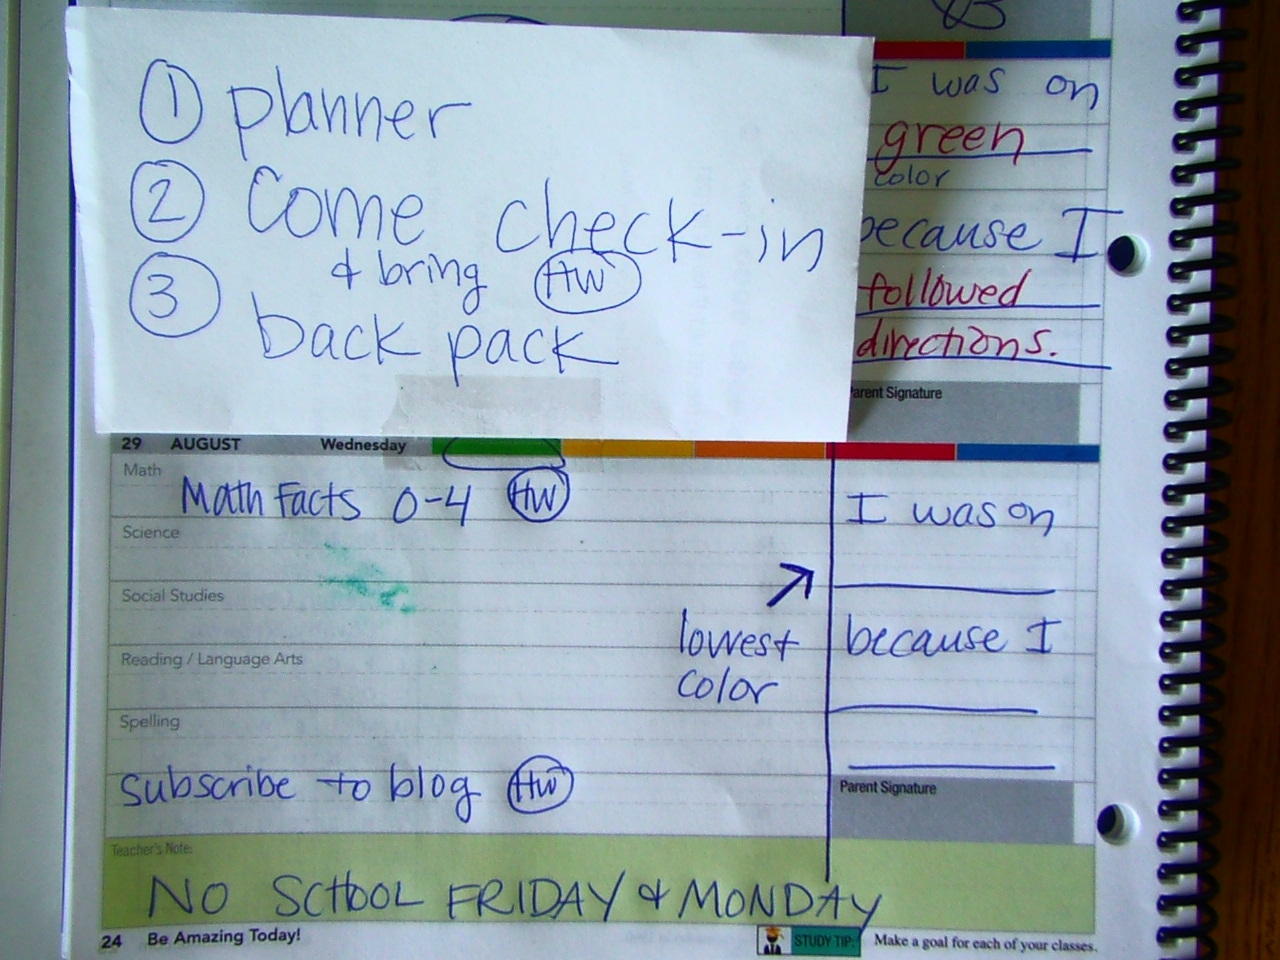 ① planner
② Come check-in
& bring HW
③ back pack
I was on
green
color
because I
followed
directions.
Parent Signature
29 AUGUST Wednesday
Math
Math Facts 0-4 HW
Science
Social Studies
Reading / Language Arts
Spelling
subscribe to blog HW
lowest
color
I was on
because I
Parent Signature
Teacher's Note:
NO SCHOOL FRIDAY & MONDAY
24 Be Amazing Today!
STUDY TIP: Make a goal for each of your classes.